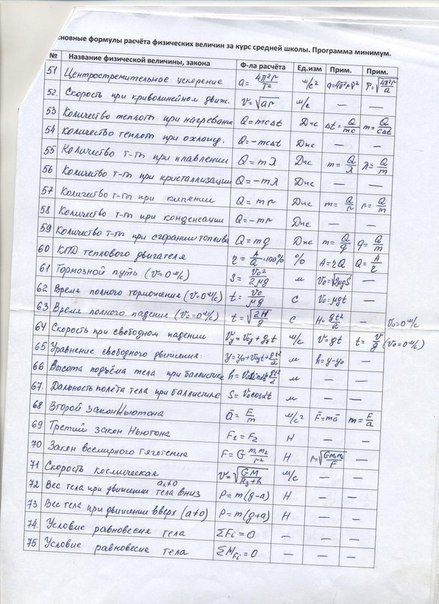 сновные формулы расчёта физических величин за курс средней школы. Программа минимум.
№ Название физической величины, закона Ф-ла расчёта Ед.изм Прим. Прим.
51 Центростремительное ускорение a=4π²r/T² м/с² a=4π²rν² T=√4π²r/a
52 Скорость при криволинейном движ. V=√ar м/с — —
53 Количество теплоты при нагревании Q=mcΔt Дж Δt=Q/mc m=Q/cΔt
54 Количество теплоты при охлажд. Q=-mcΔt Дж — —
55 Количество т-ты при плавлении Q=mλ Дж m=Q/λ λ=Q/m
56 Количество т-ты при кристаллизации Q=-mλ Дж — —
57 Количество т-ты при кипении Q=mr Дж m=Q/r r=Q/m
58 Количество т-ты при конденсации Q=-mr Дж — —
59 Количество т-ты при сгорании топлива Q=mq Дж m=Q/q q=Q/m
60 КПД теплового двигателя η=A/Q·100% % A=ηQ Q=A/η
61 Тормозной путь (V=0 м/с) S=V₀²/2μg м V₀=√2μgS —
62 Время полного торможения (V=0 м/с) t=V₀/μg с V₀=μgt —
63 Время полного падения (V₀=0 м/с) t=√2H/g с H=gt²/2 — V₀=0 м/с
64 Скорость при свободном падении Vy=V₀y+gyt м/с V=gt t=V/g (V₀=0 м/с)
65 Уравнение свободного движения y=y₀+V₀yt+gyt²/2 м h=y-y₀ —
66 Высота подъёма тела при баллистике м — —
67 Дальность полёта тела при баллистике S=V₀cosαt м — —
68 Второй закон Ньютона a=F/m м/с² F=ma m=F/a
69 Третий закон Ньютона F₁=F₂ Н — —
70 Закон всемирного тяготения F=Gm₁m₂/r² Н r=√Gm₁m₂/F —
71 Скорость космическая V=√GM/R₃+h м/с — —
72 Вес тела при движении тела вниз a≠0 P=m(g-a) Н — —
73 Вес тела при движении вверх (a≠0) P=m(g+a) Н — —
74. Условие равновесия тела ΣFi=0 — — —
75 Условие равновесия тела ΣMFi=0 — — —